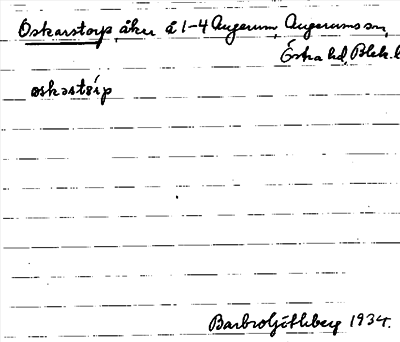 Oskarstorp, åker å 1-4 Augerum, Augerums sn,
Östra hd, Blek. l
oskastårp
Barbro Göthberg 1934.